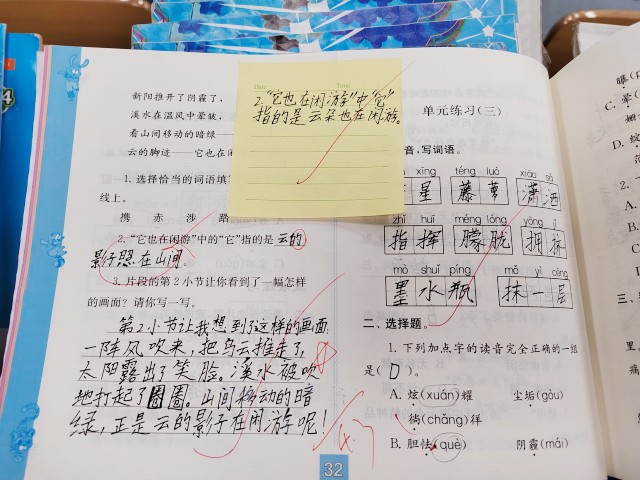 2."它也在闲游"中"它"
指的是云朵也在闲游。
新阳推开了阴霾了,
溪水在温风中晕皱,
看山间移动的暗绿——
云的脚迹——它也在闲
1. 选择恰当的词语填
线上。
携 赤 涉 踏
2."它也在闲游"中的"它"指的是 云的
影子照在山间。
3. 片段的第 2 小节让你看到了一幅怎样
的画面? 请你写一写。
第2小节让我想到了这样的画面
一阵风吹来,把乌云推走了,
太阳露出了笑脸。溪水被吹
地打起了圈圈。山间移动的暗
绿,正是云的影子在闲游呢!
32
单元练习(三)
音,写词语。
xīng téng luó xiāo sǎ
星 藤萝 潇洒
zhǐ huī méng lóng yōng jǐ
指挥 朦胧 拥挤
mò shuǐ píng mǒ yì céng
墨水瓶 抹一层
二、选择题。
1. 下列加点字的读音完全正确的一组
是( D )。
A. 炫(xuàn)耀 尘垢(gòu)
徜(chǎng)徉
B. 胆怯(què) 阴霾(mái)